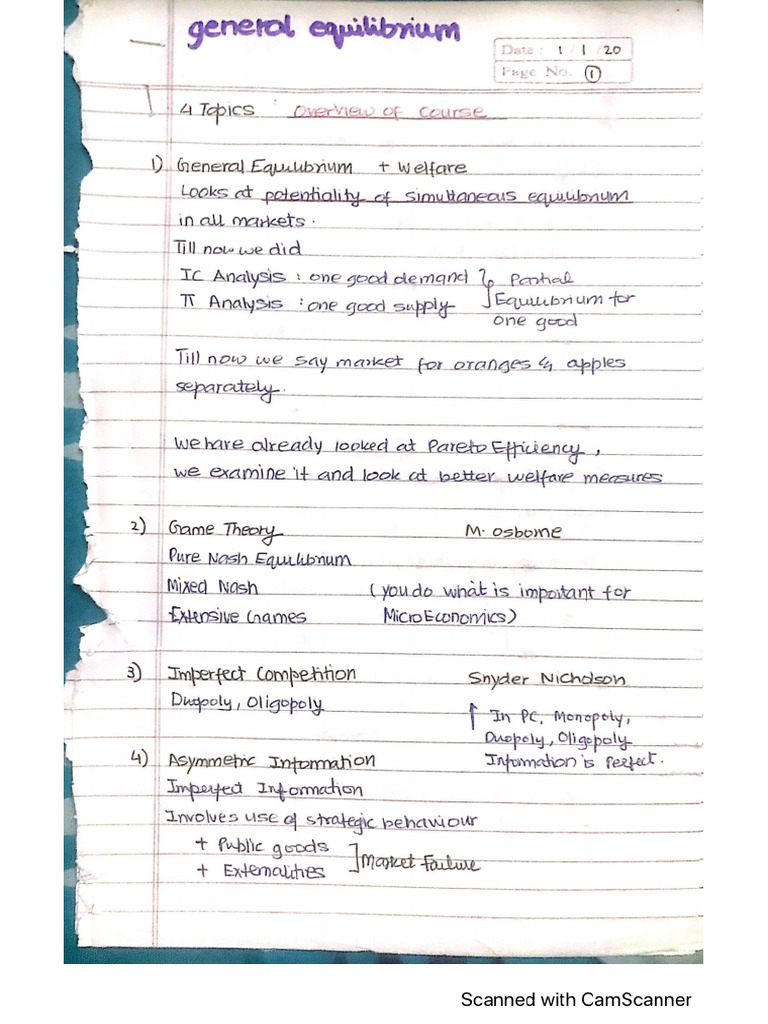 general equilibrium
Date: 1 / 1 / 20
Page No. ①
4 Topics : Overview of course
1) General Equilibrium + Welfare
Looks at potentiality of simultaneous equilibrium
in all markets.
Till now we did
IC Analysis : one good demand } Partial
π Analysis : one good supply Equilibrium for
one good
Till now we say market for oranges & apples
separately.
We have already looked at Pareto Efficiency,
we examine it and look at better welfare measures
2) Game Theory M. Osborne
Pure Nash Equilibrium
Mixed Nash (you do what is important for
Extensive Games MicroEconomics)
3) Imperfect Competition Snyder Nicholson
Duopoly, Oligopoly ↑ In PC, Monopoly,
Duopoly, Oligopoly
4) Asymmetric Information Information is Perfect.
Imperfect Information
Involves use of strategic behaviour
+ Public goods ] Market Failure
+ Externalities
Scanned with CamScanner